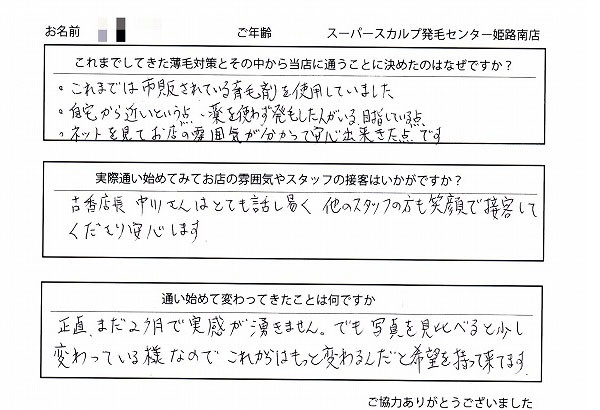 お名前 ご年齢 スーパースカルプ発毛センター姫路南店
これまでしてきた薄毛対策とその中から当店に通うことに決めたのはなぜですか？
・これまでは市販されている育毛剤を使用していました
・自宅から近いという点、薬を使わず発毛した人がいる、目指している点
・ネットを見てお店の雰囲気が分かって安心出来きた点です
実際通い始めてみてお店の雰囲気やスタッフの接客はいかがですか？
古香店長 中川さんはとても話し易く 他のスタッフの方も笑顔で接客して
くださり安心します
通い始めて変わってきたことは何ですか
正直、まだ2ヶ月で実感が湧きません。でも写真を見比べると少し
変わっている様なので これからはもっと変わるんだと希望を持って来てます
ご協力ありがとうございました